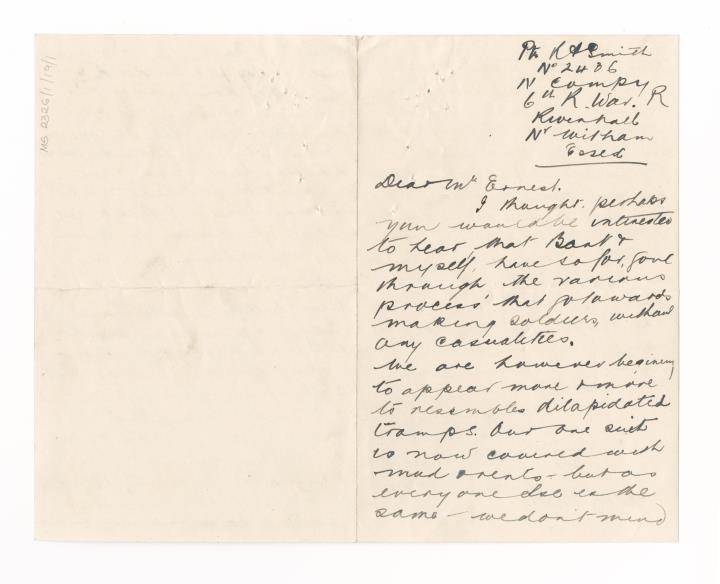 MS 2326/1/19/1
Pte R A Smith
No 2486
N Compy
6th R. War. R
Rivenhall
Nr Witham
Essex
Dear Mr Ernest.
I thought perhaps
you would be interested
to hear that &
myself, have so far, gone
through the various
process' that go towards
making soldiers, without
any casualities.
We are however begining
to appear more & more
to ressembles dilapidated
tramps. Our one suit
is now covered with
mud & rents - but as
every one else is the
same - we don't mind